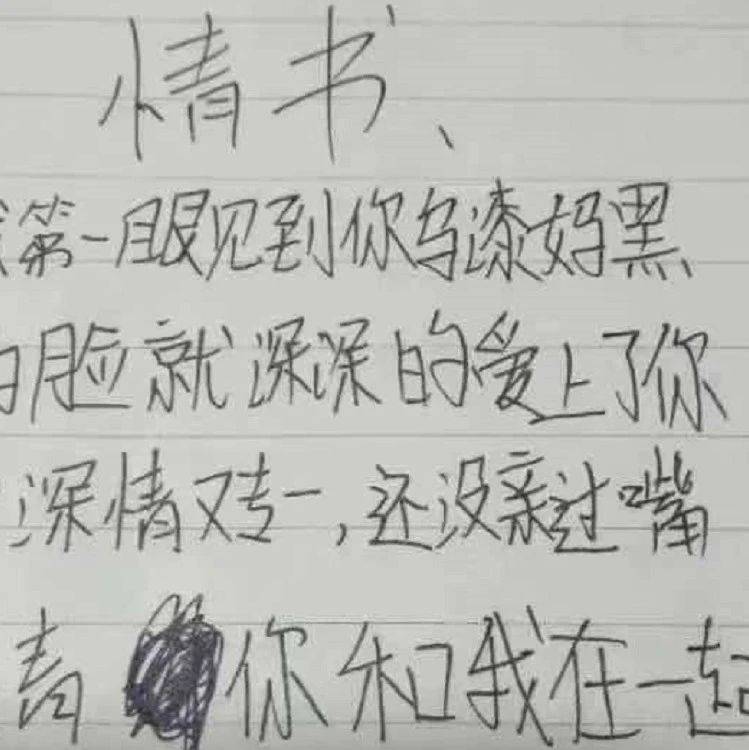 情书、
第一眼见到你乌漆妈黑
脸就深深的爱上了你
深情又专一,还没亲过嘴
青 你和我在一起